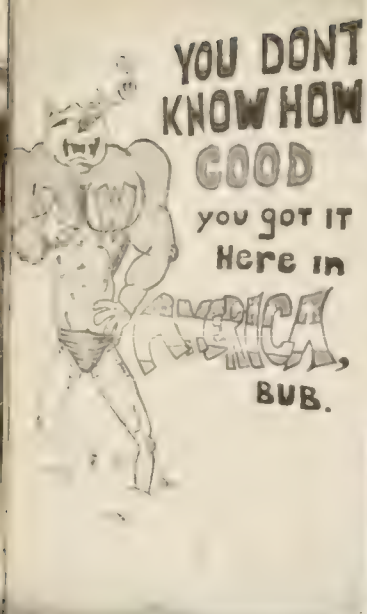 YOU DONT
KNOW HOW
GOOD
you got IT
Here in
AMERICA,
BUB.